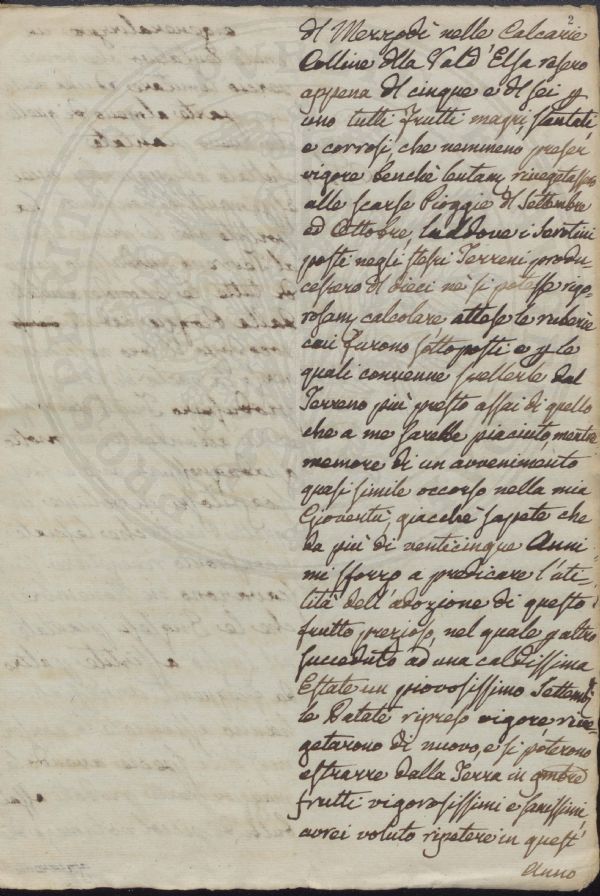 2
del Mezzodì nelle Calcarie
Colline della Val d'Elsa resero
appena del cinque e del sei p
uno tutti frutti magri, stantati
e corrosi, che nemmeno preser
vigore benchè lentam, rivegetassero
alle scarse Pioggie di Settembre
ed Ottobre, laddove i Serotini
posti negli stessi Terreni produ
cessero di dieci nè si potesse rigo-
rosam, calcolare attese le ruberie
cui furono sottoposti e p le
quali convenne svellerle dal
Terreno più presto assai di quello
che a me sarebbe piaciuto, mentre
memore di un avvenimento
quasi simile occorso nella mia
Gioventù, giacchè sapete che
da più di venticinque Anni
mi sforzo a predicare l'uti-
lità dell'adozione di questo
frutto prezioso, nel quale p altro
succeduto ad una caldissima
Estate un piovosissimo Settemb
le Patate ripreso vigore, rive-
getarono di nuovo, e si poterono
estrarre dalla Terra in
frutti vigorosissimi e sanissimi,
avrei voluto ripetere in quest'
Anno